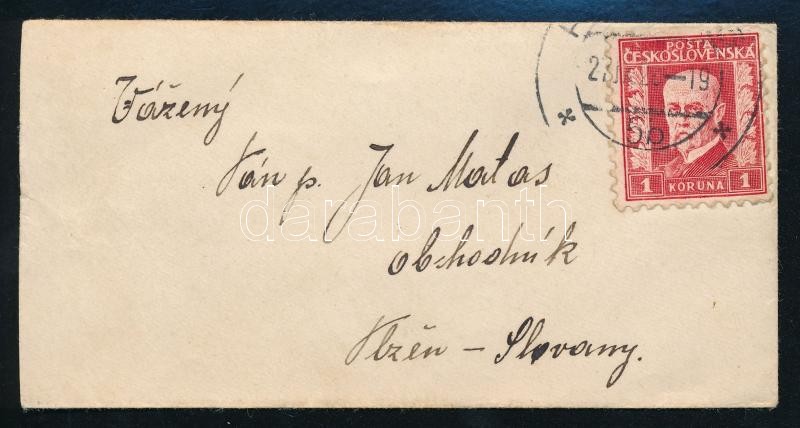 POŠTA
ČESKOSLOVENSKÁ
-19
5b
1 KORUNA 1
Vážený
Pán p. Jan Matas
obchodník
Plzěn - Slovany.
darabanth